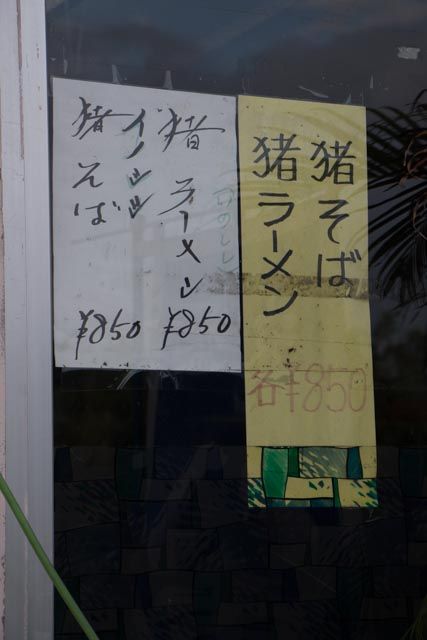 猪そば
猪ラーメン
各¥850
いのしし
猪ラーメン ¥850
イノシシ
猪そば ¥850